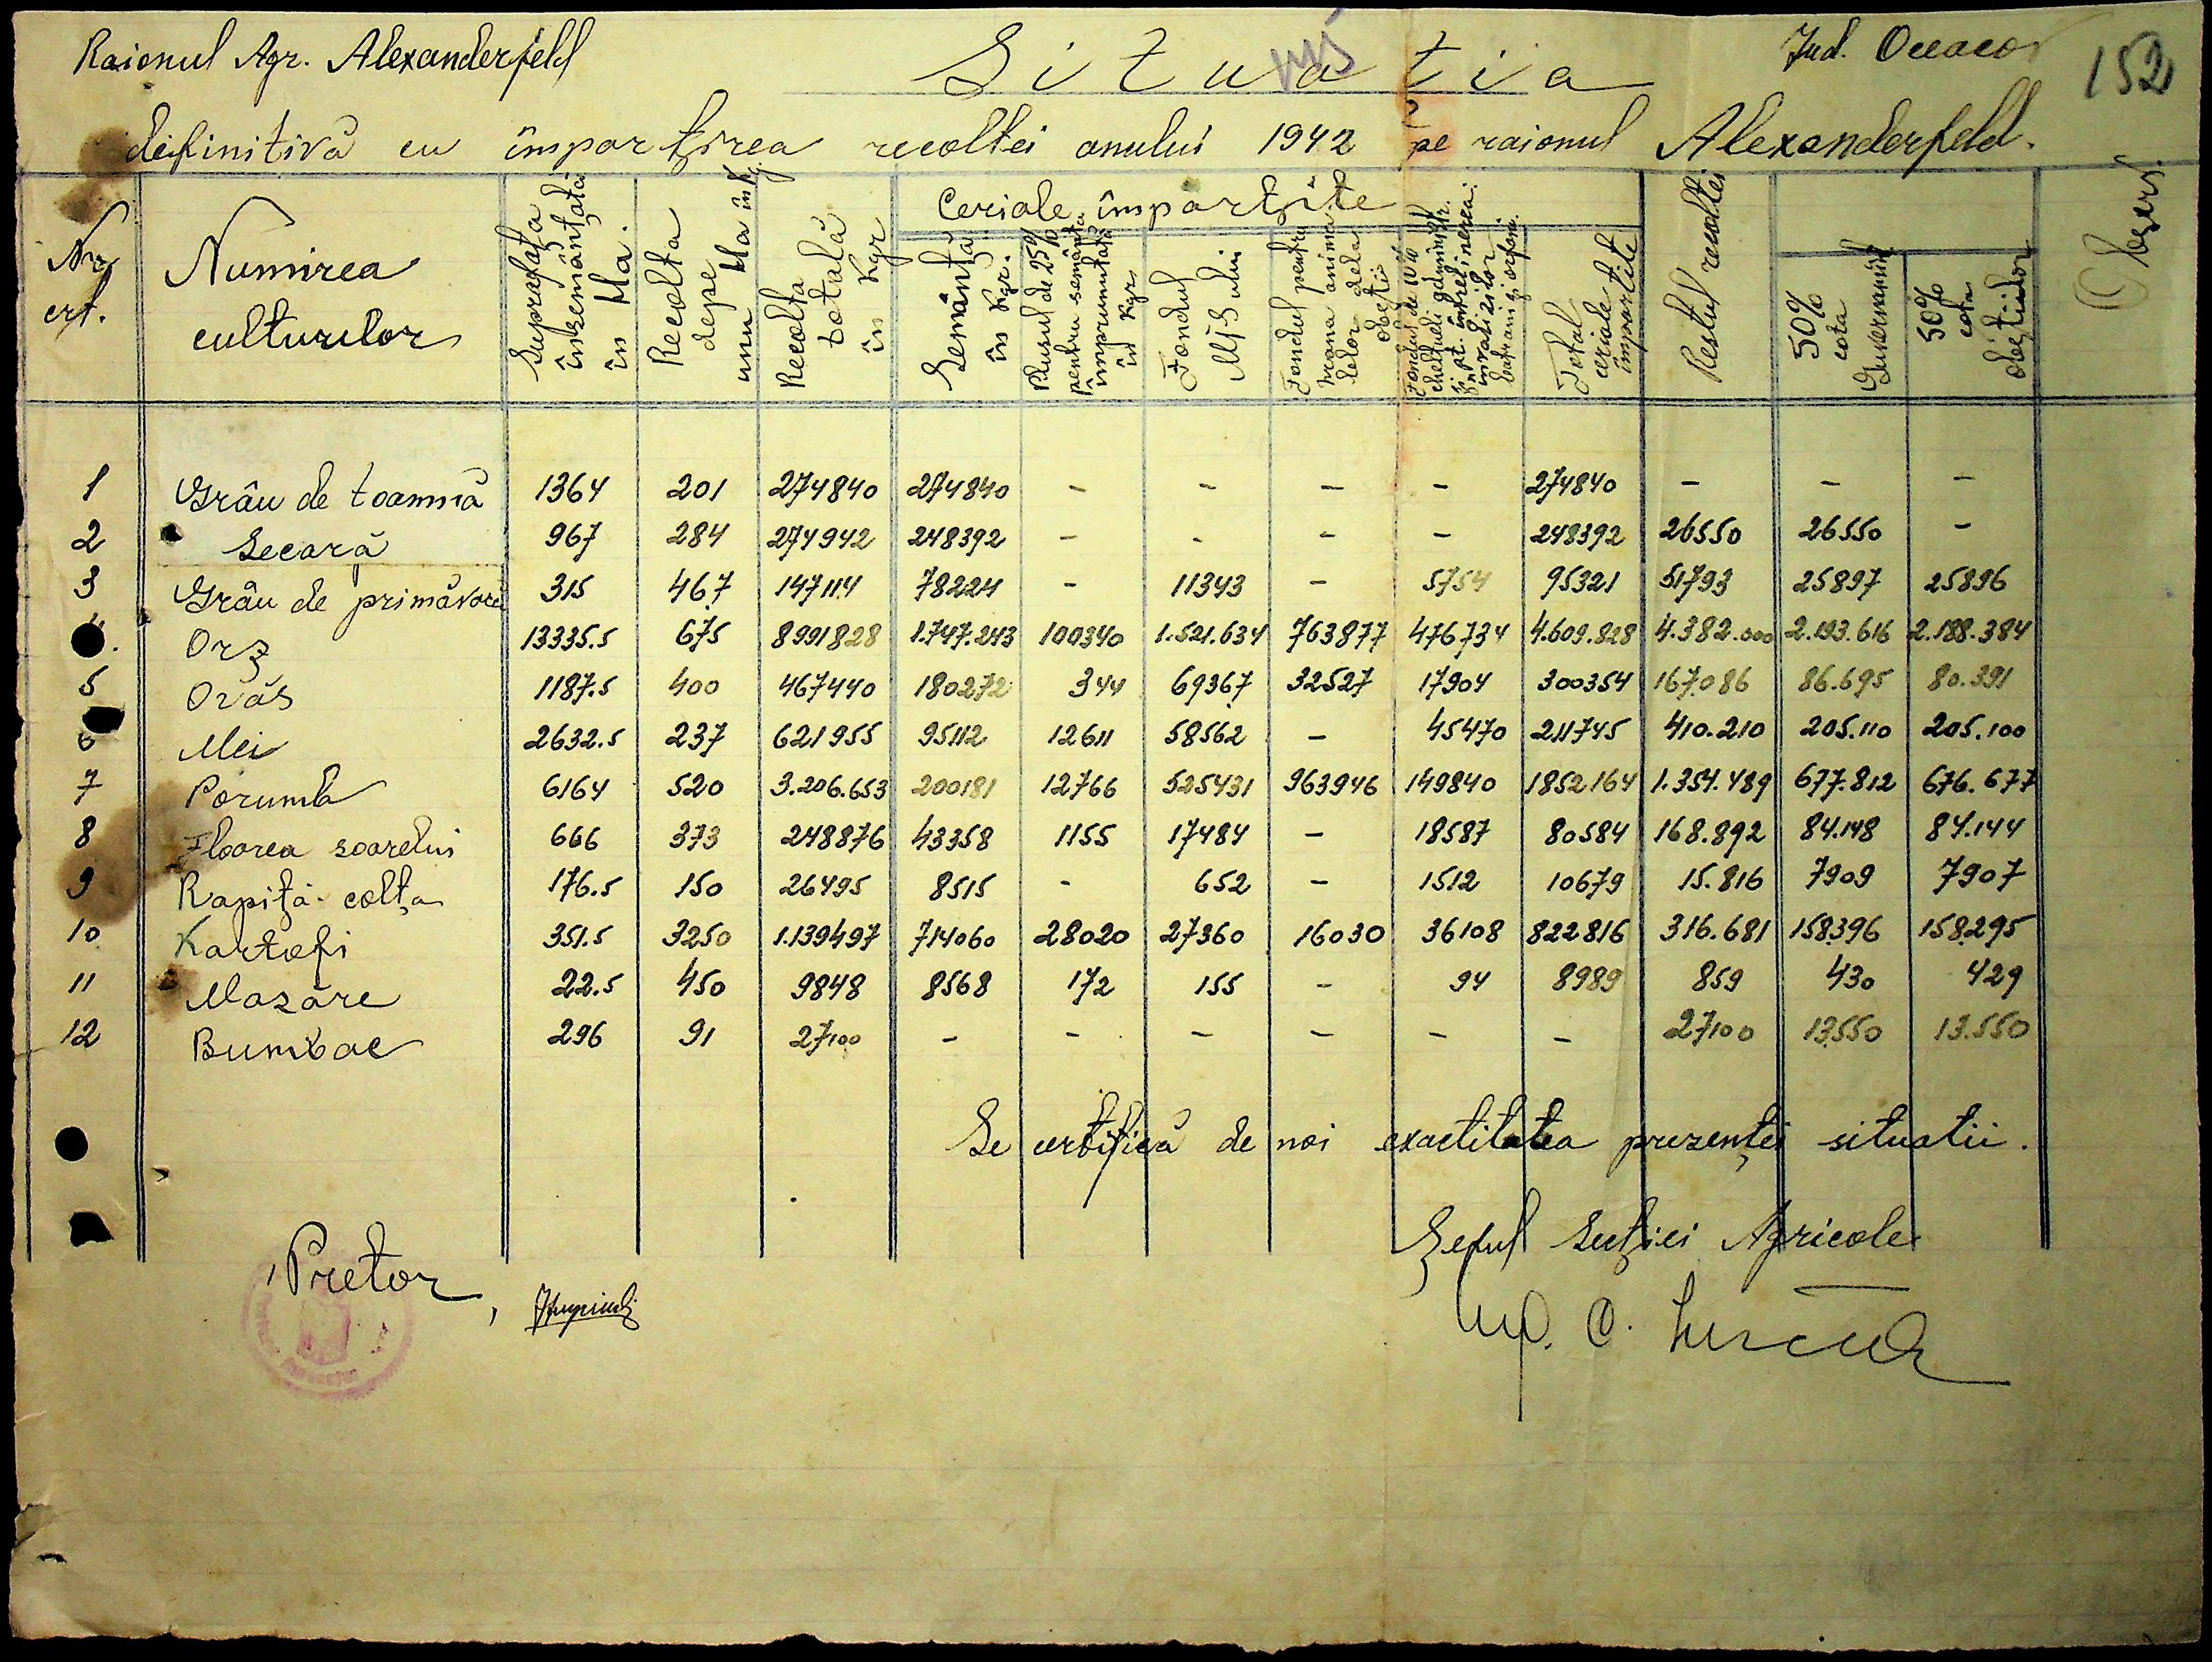 Raionul Agr. Alexanderfeld
Situația
Jud. Oceacov
152
definitivă cu împarțirea recoltei anului 1942 pe raionul Alexanderfeld.
Nr. crt. | Numirea culturilor | Suprafața însemânțată în Ha. | Recolta depe unu Ha în kg | Recolta totală în Kgr | Ceriale împarțite | Restul recoltei | Observ.
Semânța în Kgr. | Plusul de 25% pentru semânța împrumutată în Kgr | Fondul | Fondul pentru hrana animalelor dela obștii | Fondul de 10% cheltueli administr. și pt. întreținerea invalizilor batrani și orfani. | Total ceriale împarțite | 50% cota Guvernamânt | 50% cota obștiilor
1 Grâu de toamnă 1364 201 274840 274840 - - - - 274840 - - -
2 Secară 967 284 274942 248392 - - - - 248392 26550 26550 -
3 Grâu de primăvară 315 467 147114 78224 - 11343 - 5754 95321 51793 25897 25896
4. Orz 13335.5 675 8991828 1.747.243 100340 1.521.634 763877 476734 4.609.828 4.382.000 2.193.616 2.188.384
5 Ovăs 1187.5 400 467440 180272 344 69367 32527 17904 300354 167086 86.695 80.391
6 Mei 2632.5 237 621955 95112 12611 58562 - 45470 211745 410.210 205.110 205.100
7 Porumb 6164 520 3.206.653 200181 12766 525431 963946 149840 1852164 1.354.489 677.812 676.677
8 Floarea soarelui 666 373 248876 43358 1155 17484 - 18587 80584 168.892 84.148 84.144
9 Rapiță-colța 176.5 150 26495 8515 - 652 - 1512 10679 15.816 7909 7907
10 Kartofi 351.5 3250 1.139497 714060 28020 27360 16030 36108 822816 316.681 158396 158.295
11 Mazăre 22.5 450 9848 8568 172 155 - 94 8989 859 430 429
12 Bumbac 296 91 27100 - - - - - - 27100 13.550 13.550
Se certifică de noi exactitatea prezenței situatii.
Pretor,
Șeful Secției Agricole